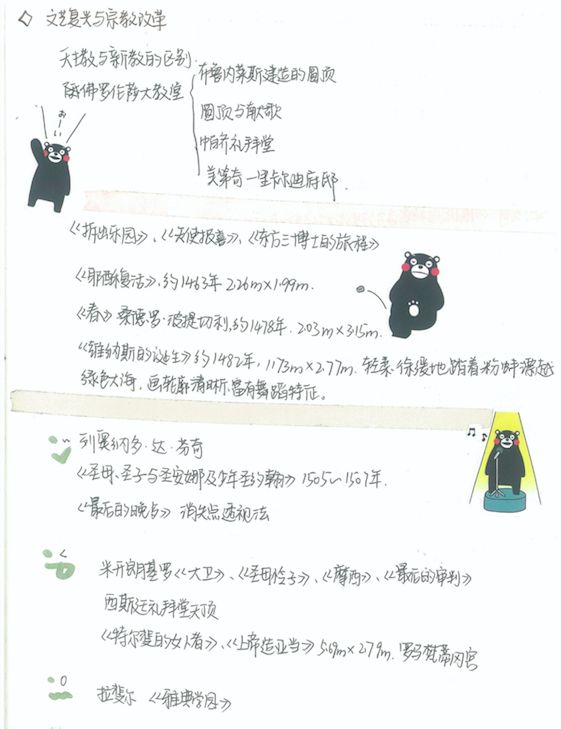 文艺复兴与宗教改革
天主教与新教的区别.
佛罗伦萨大教堂
布鲁内莱斯建造的圆顶
圆顶与献歌
帕齐礼拜堂
美第奇—里卡尔迪府邸.
おーい
《拆出乐园》、《天使报喜》、《东方三博士的旅程》
《耶稣复活》,约1463年 2.26m×1.99m.
《春》桑德罗·波提切利,约1478年. 2.03m×3.15m.
《维纳斯的诞生》约1482年, 1.73m×2.77m. 轻柔、徐缓地踏着粉蚌漂越
绿色大海, 画轮廓清晰.富有舞蹈特征。
列奥纳多·达·芬奇
《圣母、圣子与圣安娜及少年圣约翰》1505~1507年.
《最后的晚点》 消失点透视法
米开朗基罗《大卫》、《圣母怜子》、《摩西》、《最后的审判》
西斯廷礼拜堂天顶
《特尔斐的女儿者》、《上帝造亚当》5.69m×2.79m. 罗马梵蒂冈宫
拉斐尔 《雅典学园》